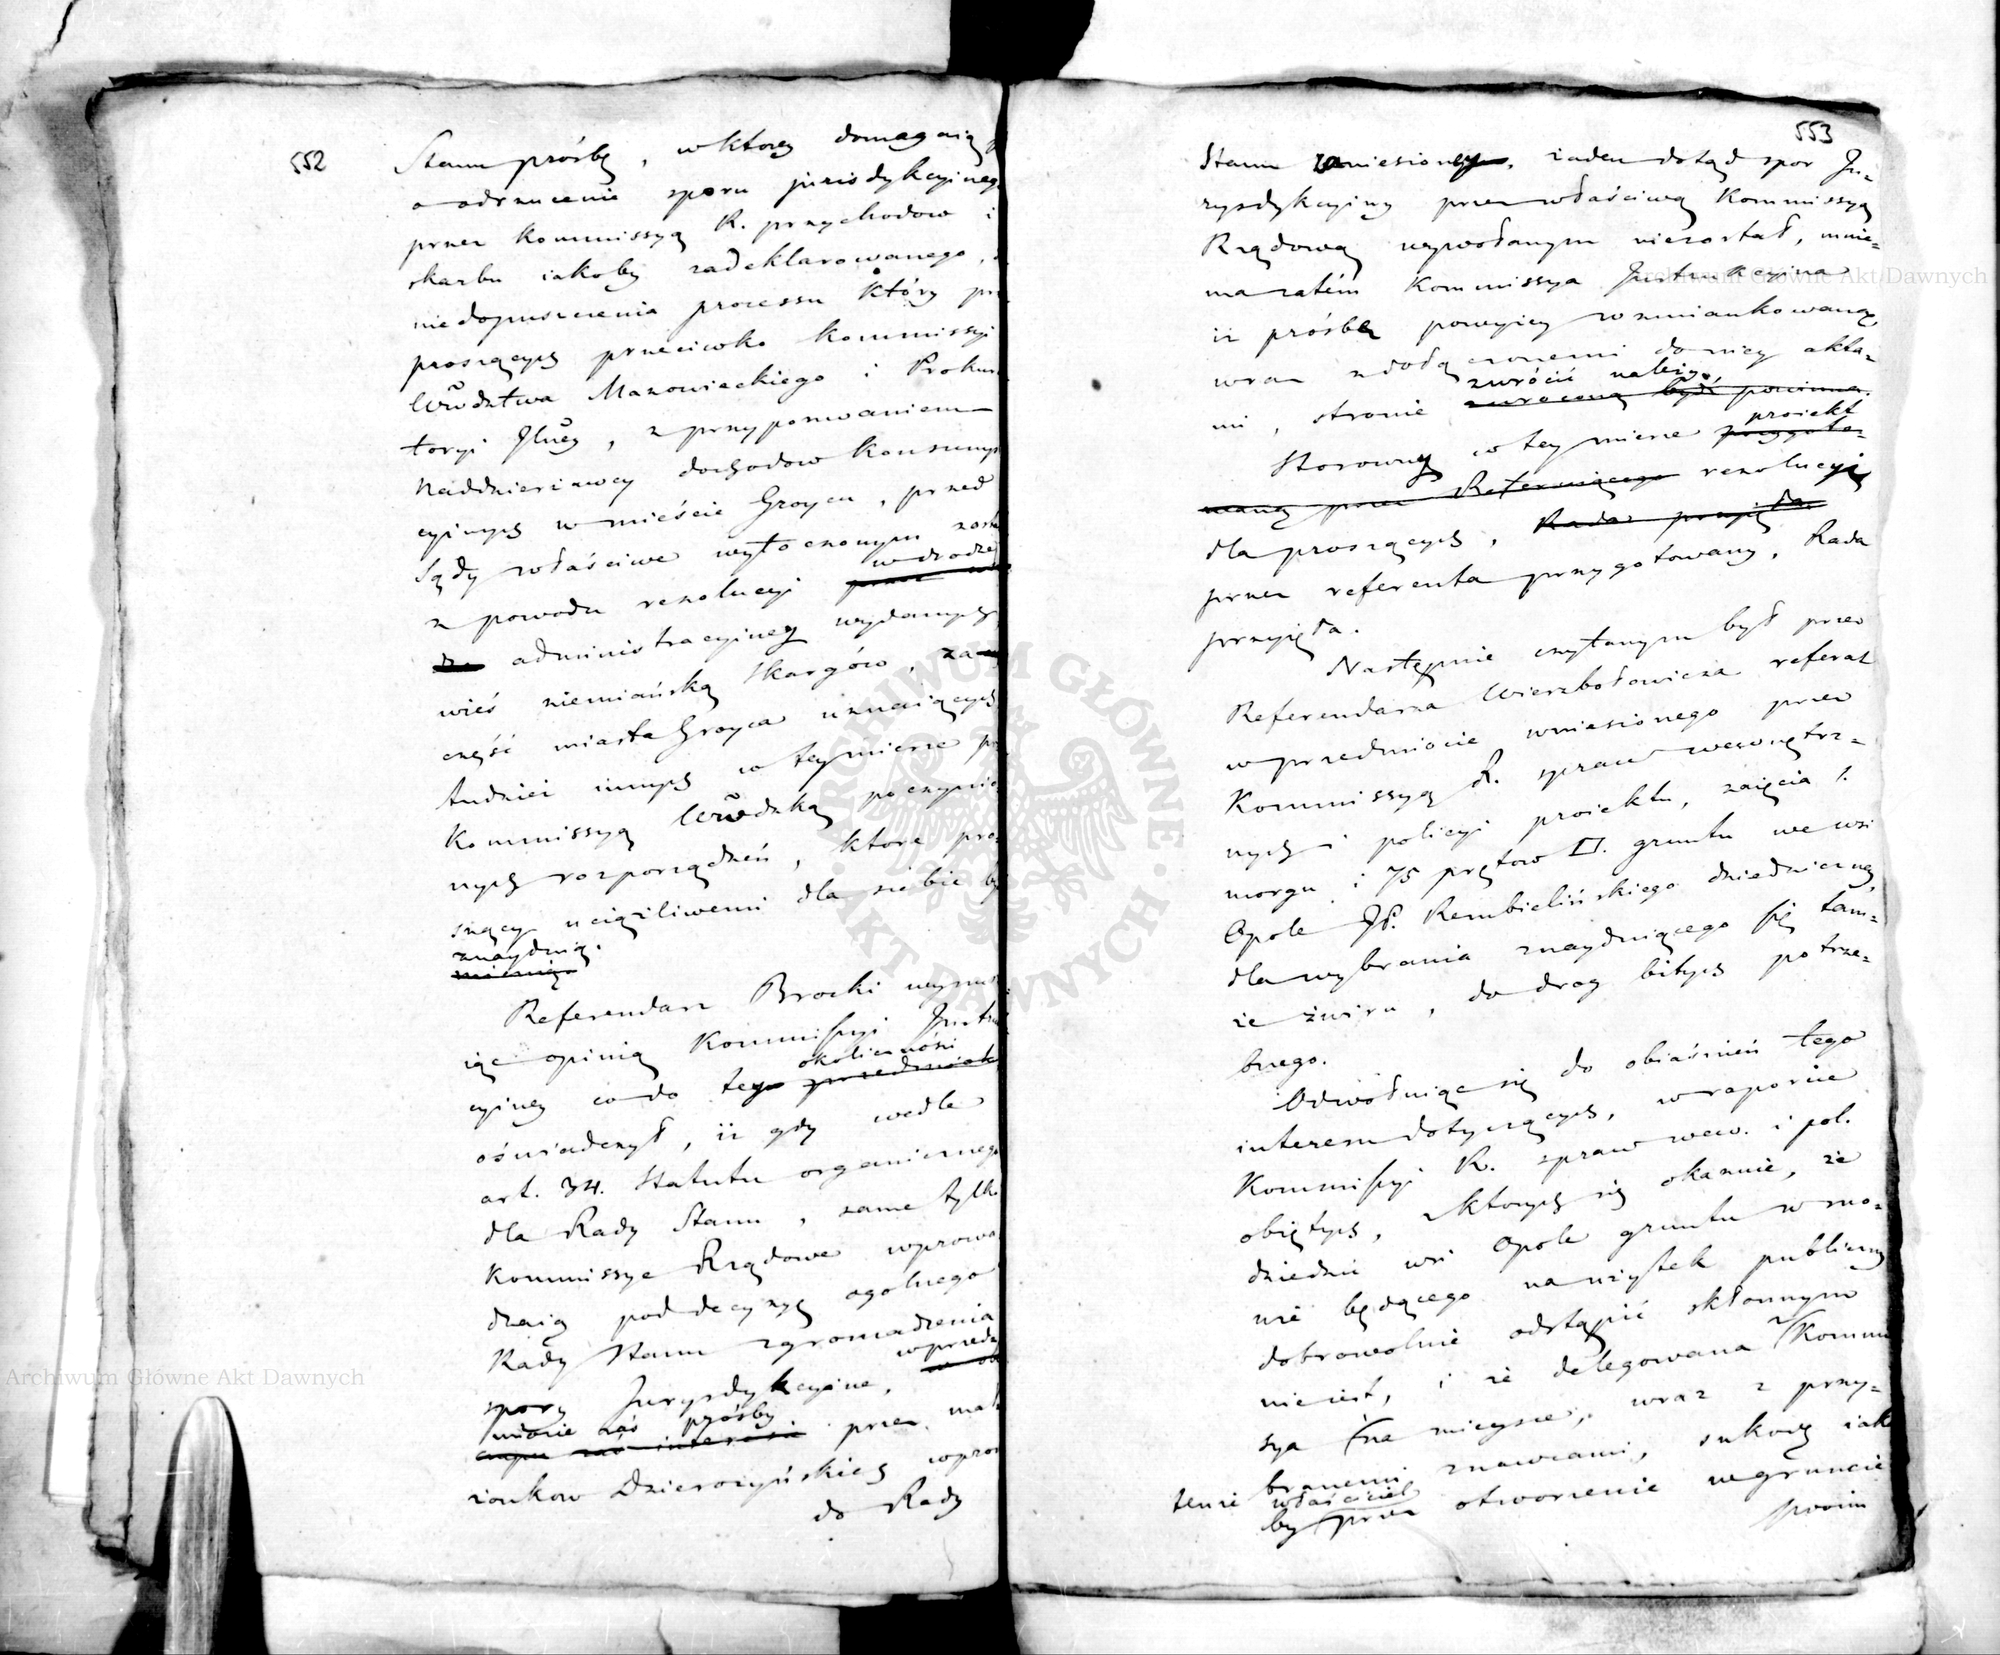 552
Stanu prośbę, w ktorey domagaią
o odrzucenie sporu jurisdykcyinego
przez Kommissyą R. przychodow i
skarbu iakoby zadeklarowanego,
niedopuszczenia processu który
proszących przeciwko Kommissyi
Wwdztwa Mazowieckiego i Proku
toryi Jlney, z przypozwaniem
Naddzierżawcy dochodow konsump
cyinych w mieście Groycu, przed
Sądy właściwe wytoczonym
z powodu rezolucyi w drodze
administracyiney wydanych,
wieś ziemiańską Skargów, za
część miasta Groyca uznaiących
tudzież innych w tey mierze
Kommissyą Wwdzką poczynio
nych rozporządzeń, ktore pro
szący uciążliwemi dla siebie
znayduią.
Referendarz Brocki
iąc opinią Kommissyi Jnstru
okoliczności
cyiney co do tey
oświadczył, iż gdy wedle
art. 34. Statutu organicznego
dla Rady Stanu, same tylko
Kommissye Rządowe wprowa
dzaią pod decyzyą ogolnego
Rady Stanu zgromadzenia
spory Jurysdykcyine, w przed
miocie zaś prośby przez mał
żonkow Dzierożyńskich wpro
do Rady
553
Stanu wniesioney, żaden dotąd spor Ju-
rysdykcyiny przez właściwą Kommissyą
Rządową wywołanym niezostał, mnie-
ma zatém Kommissya Jnstrukcyina
iż prośbę powyżey wzmiankowaną,
wraz z dołączonemi do niey akta-
zwrócić należy.
mi, stronie zwróconą być powinna.
proiekt
Stosowny w tey mierze przygoto-
waną przez Referuiącego rezolucyi
dla proszących, Rada przyięła
przez referenta przygotowany, Rada
przyięła.
Następnie czytanym był przez
Referendarza Wierzbołowicza referat
w przedmiocie wniesionego przez
Kommissyą R. spraw wewnętrz-
nych i policyi proiektu, zaięcia 1.
morgu i 75 prętow □. gruntu we wsi
Opole JP. Rembielińskiego dziedziczney,
dla wybrania znayduiącego się tam-
że żwiru, do drog bitych potrze-
bnego.
Odwołuiąc się do obiaśnień tego
interesu dotyczących, w raporcie
Kommissyi R. spraw wew. i pol.
obiętych, z ktorych się okazuie, że
dziedzic wsi Opole gruntu w mo-
wie będącego na użytek publiczny
dobrowolnie odstąpić skłonnym
nieiest, i że delegowana Kommis
sya na mieysce, wraz z przy-
branemi znawcami, szkodę iak
tenże właściciel
by przez otworzenie w gruncie